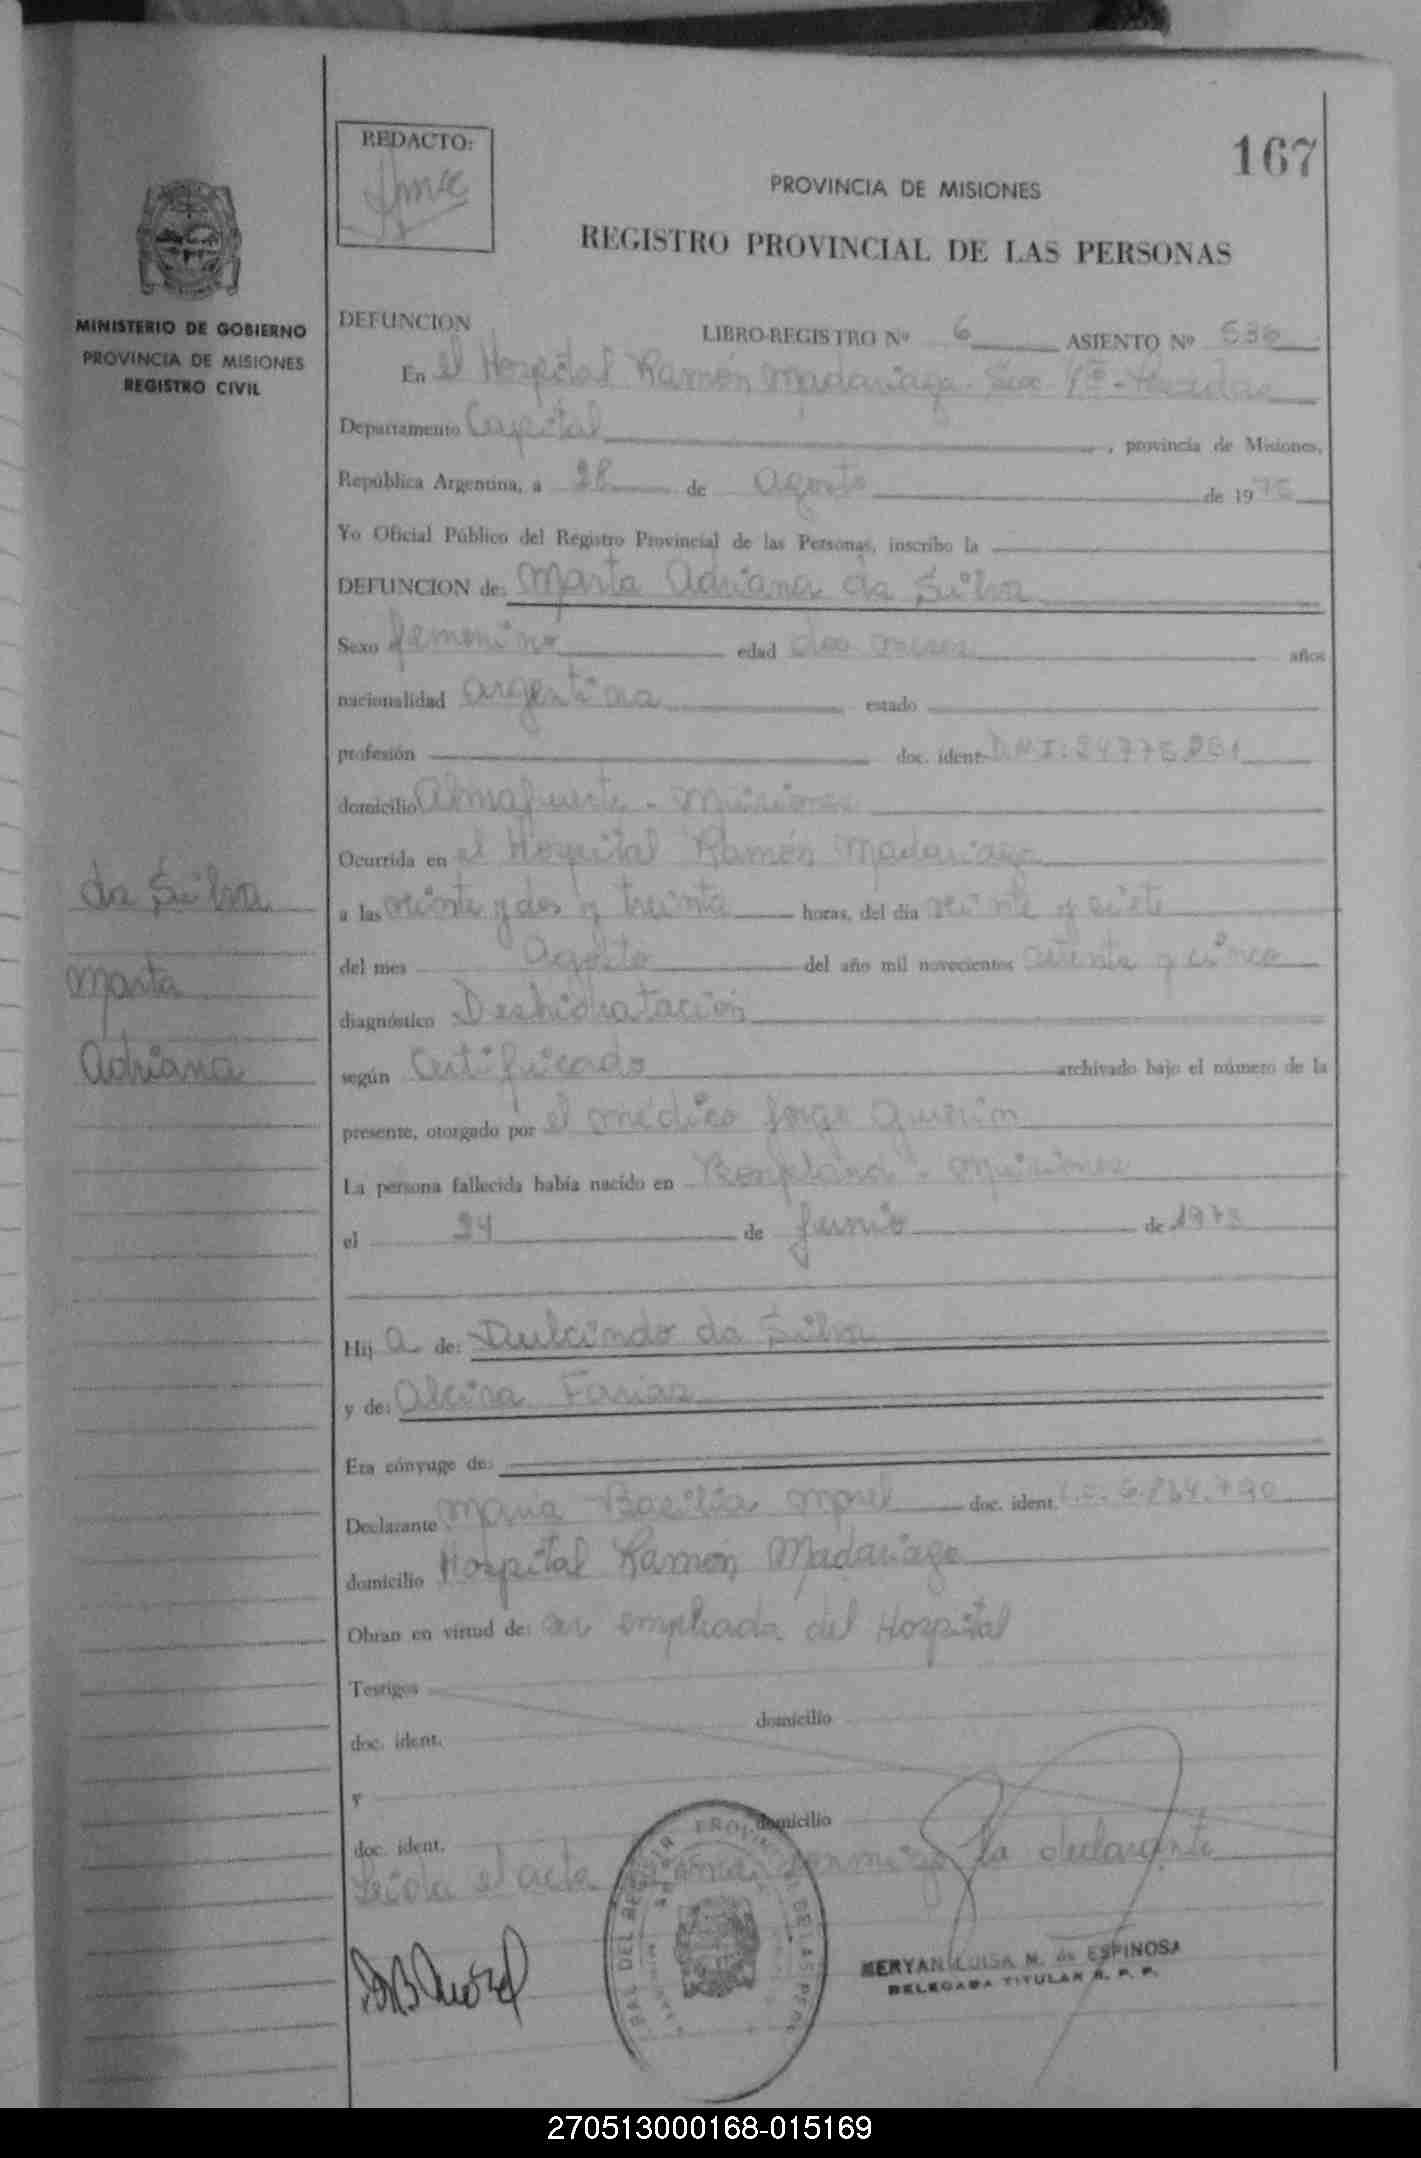 167
REDACTO:
PROVINCIA DE MISIONES
REGISTRO PROVINCIAL DE LAS PERSONAS
MINISTERIO DE GOBIERNO
PROVINCIA DE MISIONES
REGISTRO CIVIL
DEFUNCION LIBRO-REGISTRO Nº 6 ASIENTO Nº 536
En el Hospital Ramón Madariaga - Sec 1ª - Posadas
Departamento Capital, provincia de Misiones,
República Argentina, a 28 de Agosto de 1975
Yo Oficial Público del Registro Provincial de las Personas, inscribo la
DEFUNCION de: Marta Adriana da Silva
Sexo femenino edad dos meses años
nacionalidad argentina estado
profesión doc. ident. D.N.I: 24.775.251
domicilio Almafuerte - Misiones
Ocurrida en el Hospital Ramón Madariaga
a las veinte y dos y treinta horas, del día veinte y siete
del mes Agosto del año mil novecientos setenta y cinco
diagnóstico Deshidratación
según Certificado archivado bajo el número de la
presente, otorgado por el médico Jorge
La persona fallecida había nacido en Bonpland - Misiones
el 24 de Junio de 1975
Hij a de: Dulcindo da Silva
y de: Alcira Farias
Era cónyuge de:
Declarante Maria Basilia Morel doc. ident. L.C. 6.
domicilio Hospital Ramón Madariaga
Obran en virtud de: ser empleada del Hospital
Testigos
doc. ident. domicilio
y
doc. ident. domicilio
Leida el acta firma conmigo la declarante
MERYAN LUISA M. de ESPINOSA
DELEGADA TITULAR R. P. P.
da Silva
Marta
Adriana
270513000168-015169